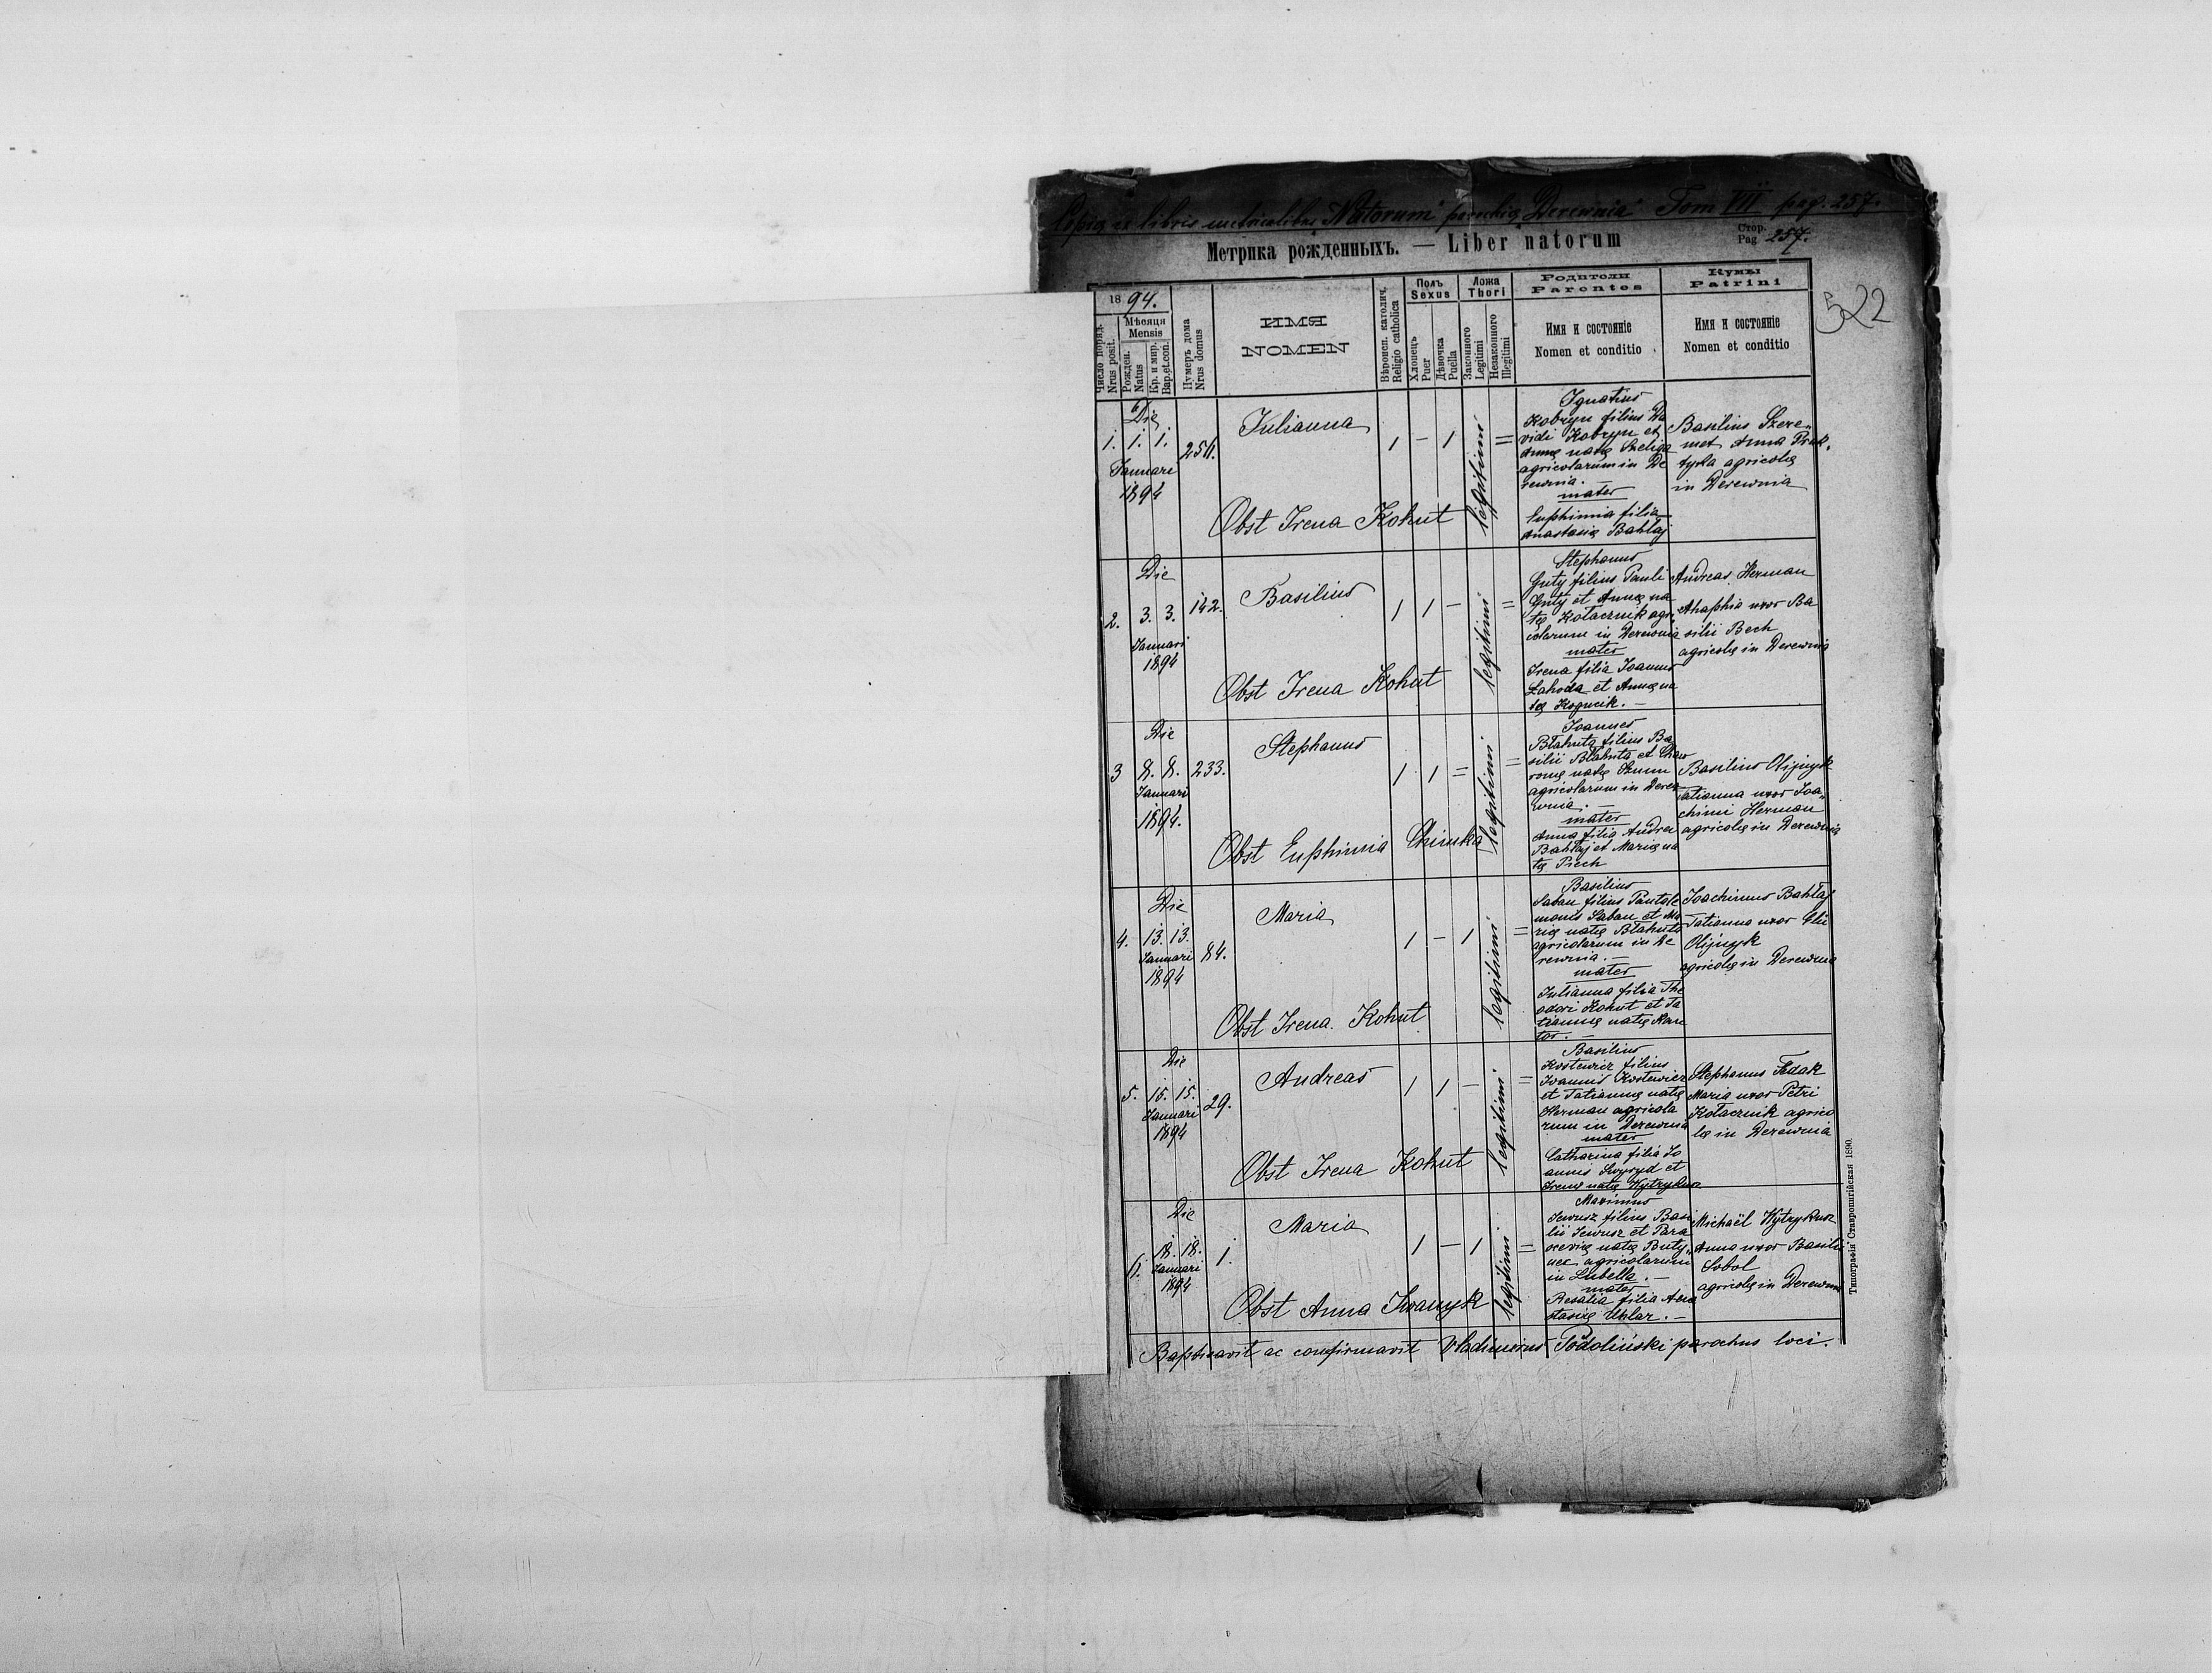 Copia ex libris metricalibus "Natorum" parochię "Derewnia" Tom VII pag. 257.
Метрика рожденныхъ. — Liber natorum
Стор.
Pag. 257.
522
18 94.
Число поряд.
Nrus posit.
Мѣсяця
Mensis
Рожден.
Natus
Кр. и мир.
Bap.et.con.
Нумеръ дома
Nrus domus
ИМЯ
NOMEN
Вѣроисп. католич.
Religio catholica
Полъ
Sexus
Хлопецъ
Puer
Дѣвочка
Puella
Ложа
Thori
Законного
Legitimi
Незаконного
Illegitimi
Родители
Parentes
Имя и состояніе
Nomen et conditio
Кумы
Patrini
Имя и состояніе
Nomen et conditio
Die
1. 1. 1.
Januari
1894
256.
Julianna
1 - 1
legitimi
=
Obst Irena Kohut
Ignatius
Kobryn filius Da
vidi Kobryn et
Annę natę Szeliga
agricolarum in De
rewnia.
mater
Euphimia filia
Anastasię Bahlaj
Basilius Szere„
met Anna Prok„
tyła agricolę
in Derewnia
Die
2. 3. 3.
Januari
1894
142.
Basilius
1 1 -
legitimi
=
Obst Irena Kohut
Stephanus
Guty filius Pauli
Guty et Annę na
tę Kołacznik agri
colarum in Derewnia
mater
Irena filia Joannis
Łahoda et Annę na
tę
Andreas Herman
Ahaphia uxor Ba
silii Bech
agricolę in Derewnia
Die
3 8. 8.
Januari
1894.
233.
Stephanus
1 1 =
legitimi
=
Obst Euphimia
Joannes
Błahuta filius Ba
silii Błahuta et
natę Szum
agricolarum in Derew
wnia. —
mater
Anna filia Andrei
Bahlaj et Marię na
tę Piech
Basilius Olijnyk
Tatianna uxor Joa„
chimi Herman
agricolę in Derewnia
Die
4. 13. 13.
Januari
1894
84.
Maria
1 - 1
legitimi
=
Obst Irena Kohut
Basilius
Saban filius Pantale
monis Saban et Ma
rię natę Błahuta
agricolarum in De
rewnia. —
mater
Julianna filia The
odori Kohut et Ta
tiannę natę
Joachimus Bahlaj
Tatianna uxor Elii
Olijnyk
agricolę in Derewnia
Die
5. 15. 15.
Januari
1894
29.
Andreas
1 1 -
legitimi
=
Obst Irena Kohut
Basilius
Kostewicz filius
Joannis Kostewicz
et Tatiannę natę
Herman agricola
rum in Derewnia
mater
Catharina filia Jo
annis Swyryd et
Irenę natę Wytrykusz
Stephanus Fedak
Maria uxor Petri
Kołacznik agrico
lę in Derewnia
Die
6. 18. 18.
Januari
1894
1.
Maria
1 - 1
legitimi
=
Obst Anna Iwanyk
Maximus
Jewusz filius Basi
lii Jewusz et Para
scevię natę Buty„
nec agricolarum
in Lubella. —
mater
Rosalia filia Ana
stasię Uhlar. —
Michaël Wytrykusz
Anna uxor Basilii
Sobol
agricolę in Derewnia
Baptisavit ac confirmavit Vladimirus Podoliński parochus loci.
Типографія Ставропигійская 1890.